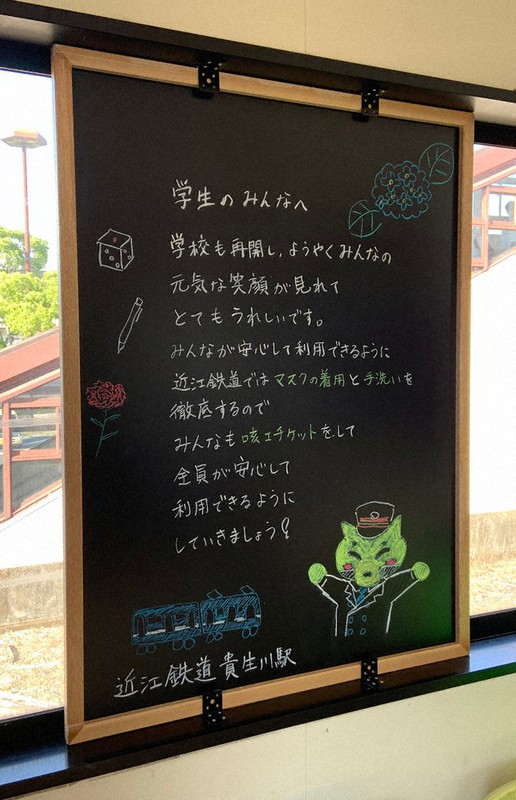 学生のみんなへ
学校も再開し、ようやくみんなの
元気な笑顔が見れて
とてもうれしいです。
みんなが安心して利用できるように
近江鉄道ではマスクの着用と手洗いを
徹底するので
みんなも咳エチケットをして
全員が安心して
利用できるように
していきましょう!
近江鉄道 貴生川駅